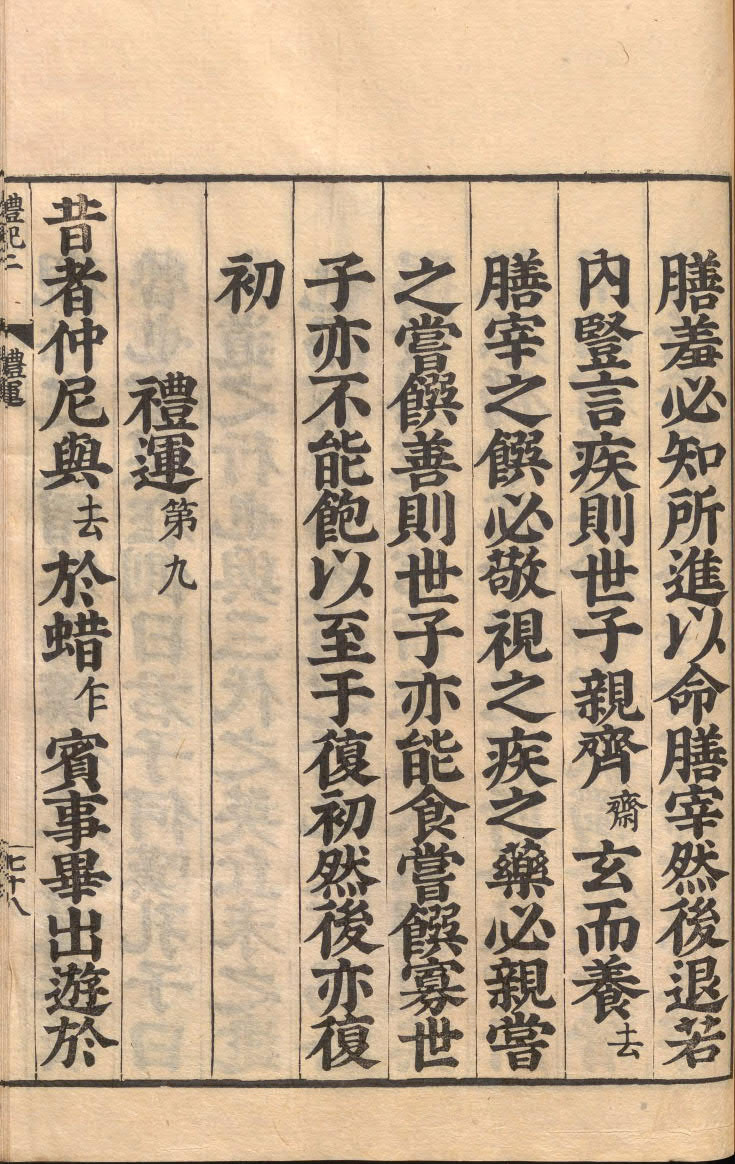 膳羞必知所進以命膳宰然後退若
內豎言疾則世子親齊齋玄而養去
膳宰之饌必敬視之疾之藥必親嘗
之嘗饌善則世子亦能食嘗饌寡世
子亦不能飽以至于復初然後亦復
初
禮運第九
昔者仲尼與去於蜡乍賓事畢出遊於
禮記二 禮運 七十八